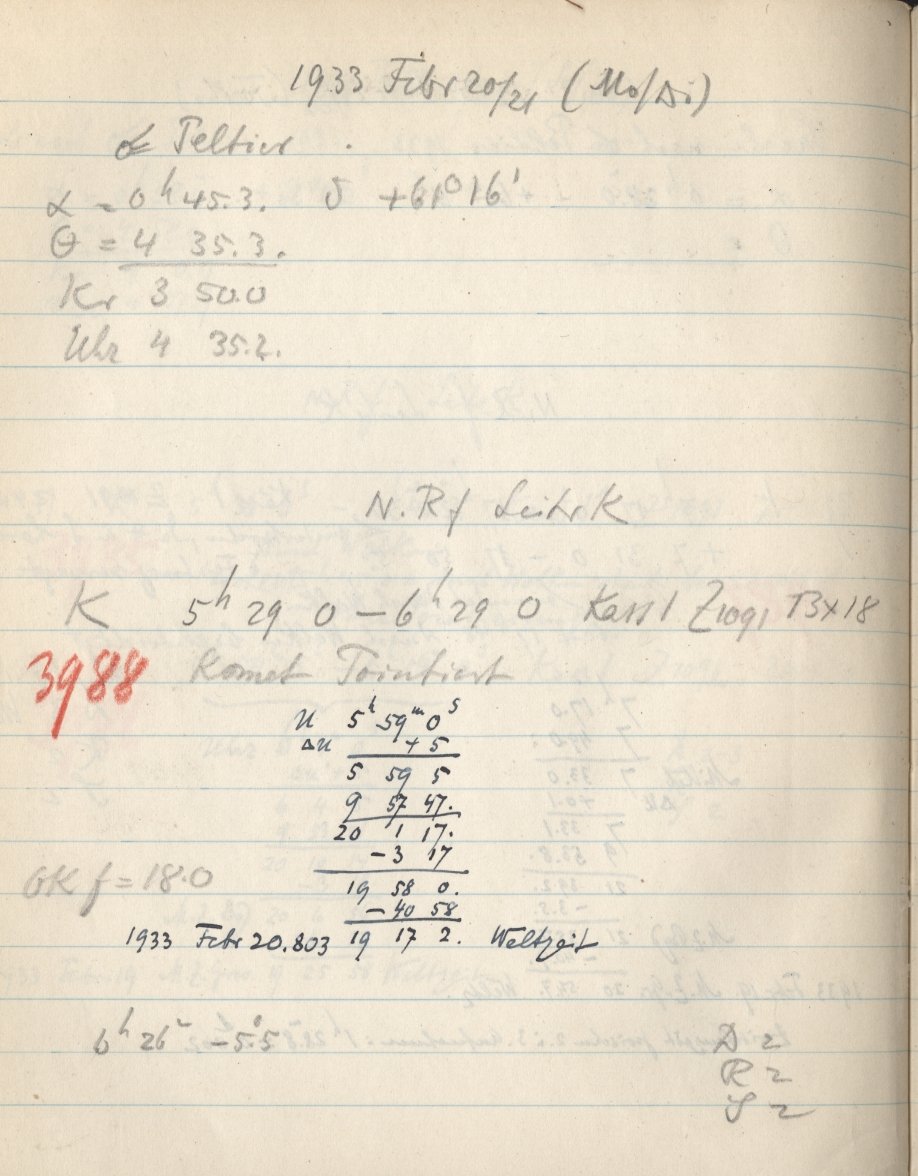 1933 Febr 20/21 (Mo/Di)
☄ Peltier
α = 0h 45.3. δ +61° 16'
Θ = 4 35.3.
Kr 3 50.0
Uhr 4 35.2.
N. Rf LeitrK
K 5h 29 0 – 6h 29 0 Kass I Z1091 B×18
3988 Komet Pointiert
U 5h 59m 0s
ΔU + 5
5 59 5
9 57 47.
20 1 17.
–3 17
GK f = 18.0
19 58 0.
–40 58
1933 Febr 20.803 19 17 2. Weltzeit
6h 26m –5s.5
D 2
R 2
S 2